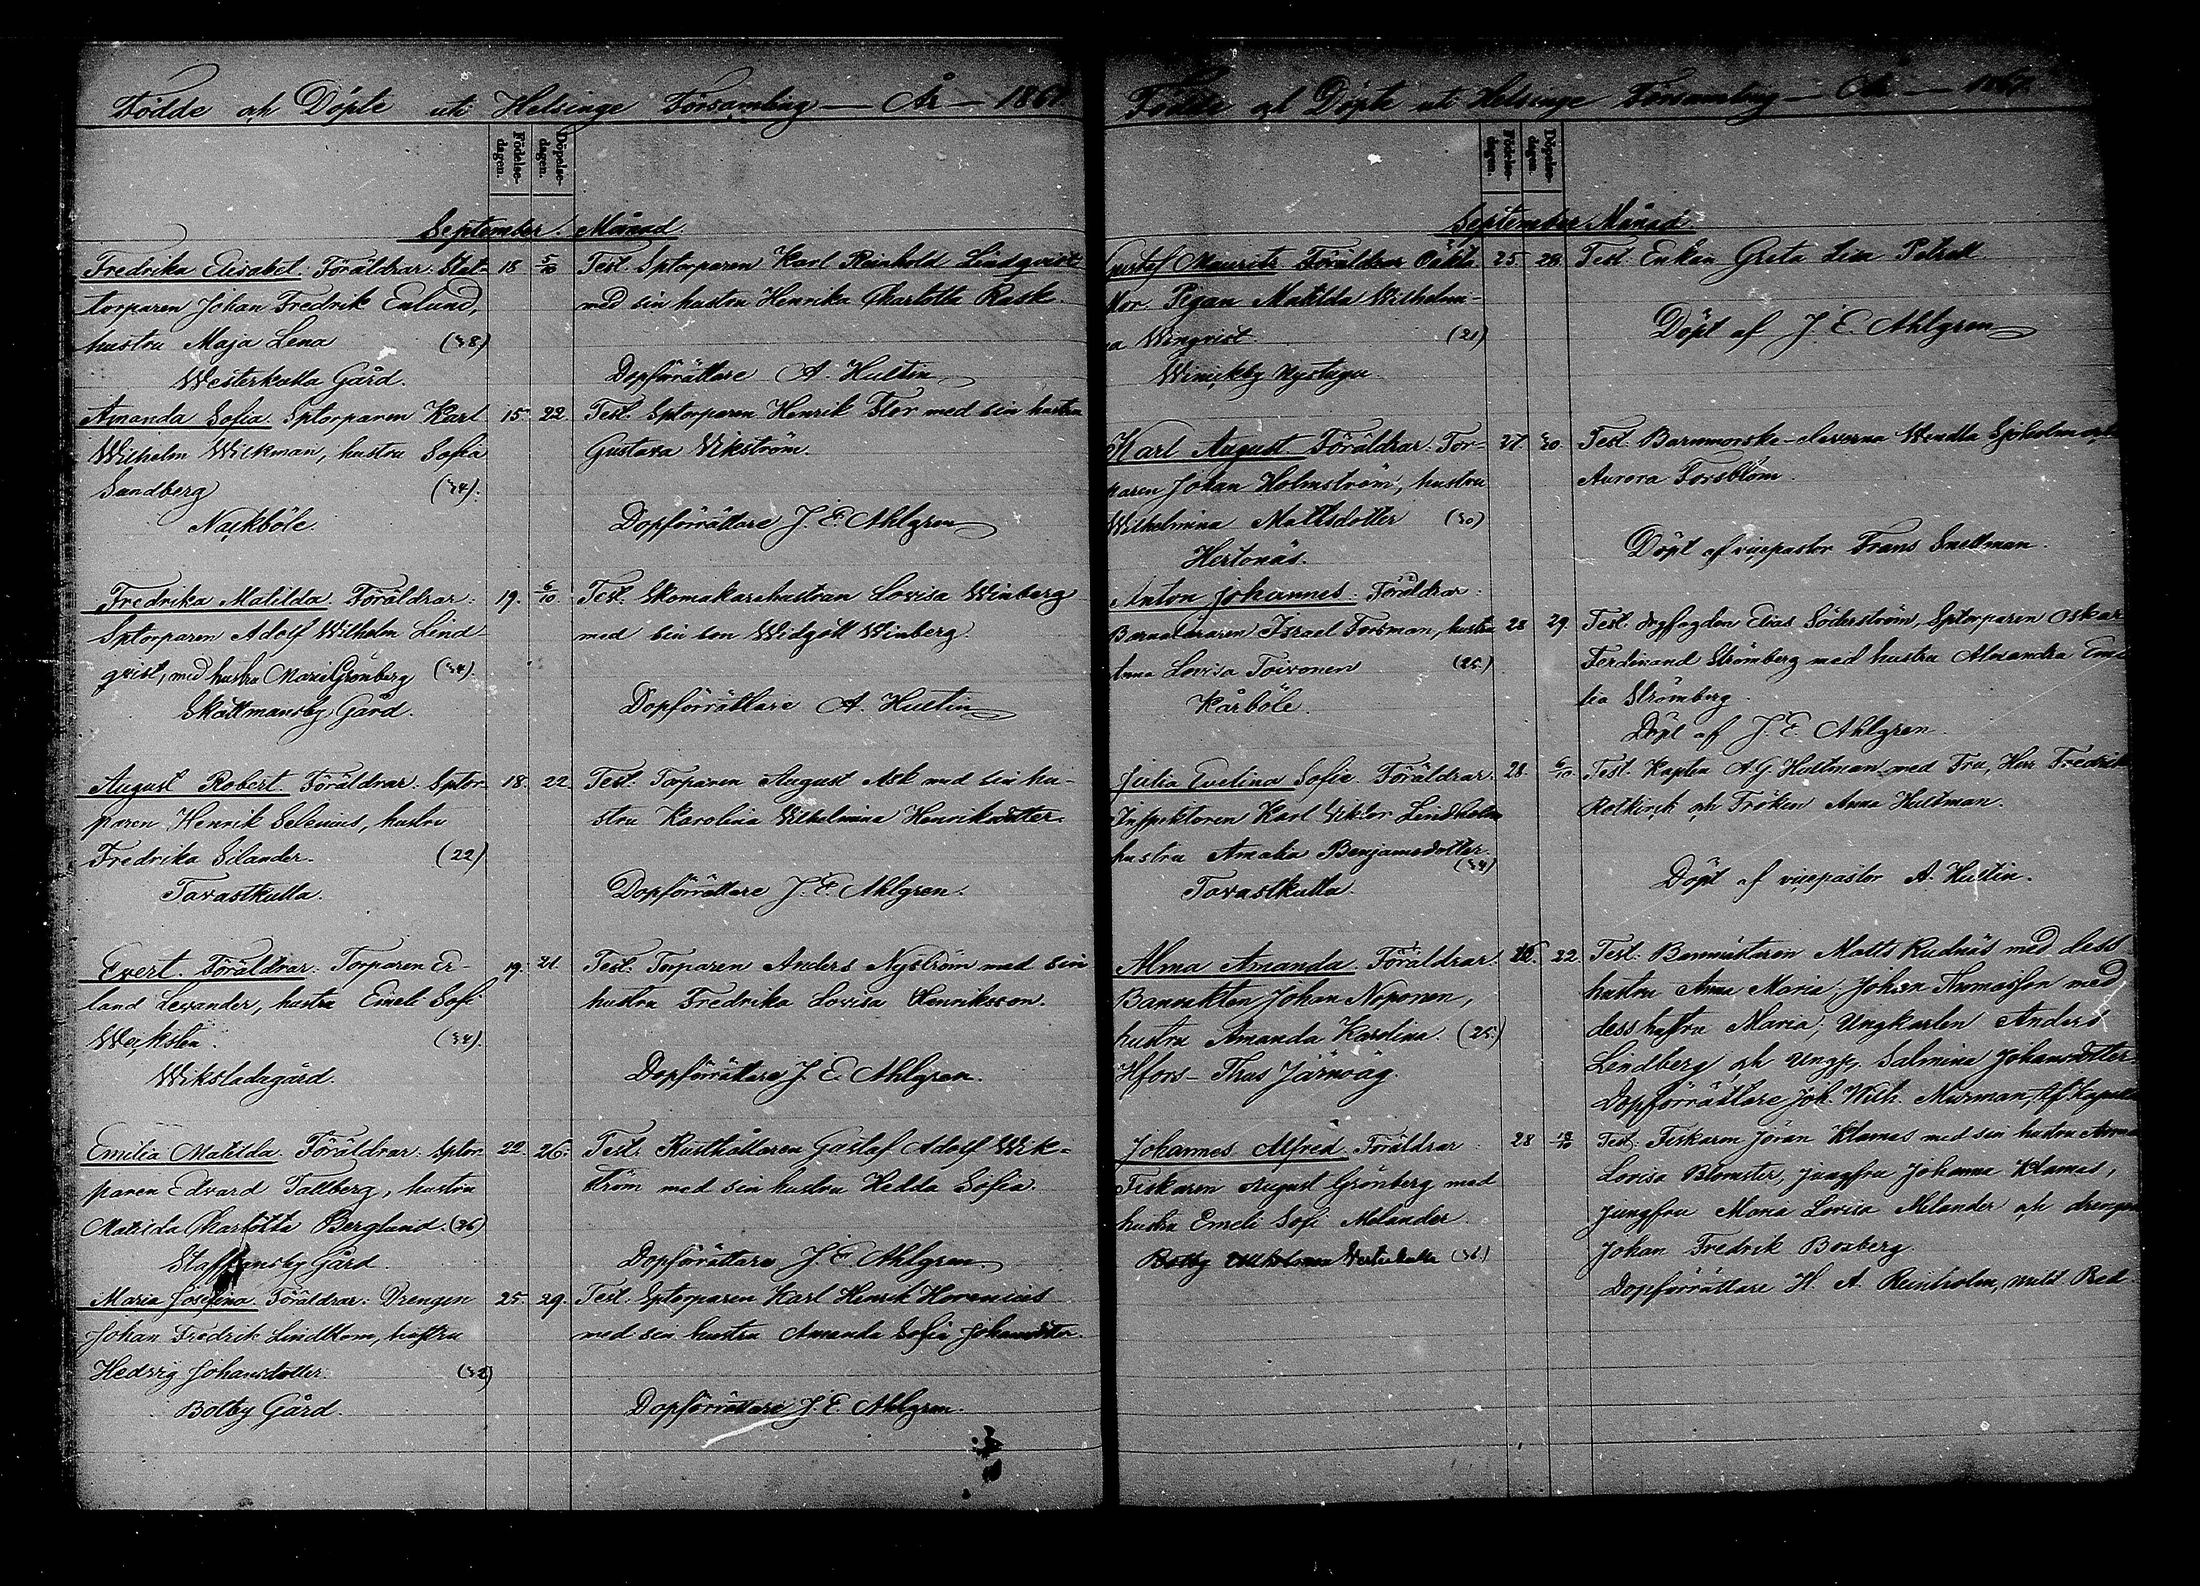 Födde och Döpte uti Helsinge Församling — År — 186
Födelse-
dagen.
Döpelse-
dagen.
September Månad
Fredrika Elisabet. Föräldrar: Stat- 18 5/10 Test. Sptorparen Karl Reinhold Lindqvist
torparen Johan Fredrik Enlund, med sin hustru Henrika Charlotta Rask
hustru Maja Lena (38)
Westerkulla Gård. Dopförrättare A. Hultin
Amanda Sofia. Sptorparen Karl 15 22 Test. Sptorparen Henrik Stor med sin hustru
Wilhelm Wickman, hustru Sofia Gustava Wikström.
Sundberg (34).
Nackböle. Dopförrättare J. E. Ahlgren
Fredrika Matilda. Föräldrar: 19. 6/10 Test. Skomakarehustrun Lovisa Winberg
Sptorparen Adolf Wilhelm Lind- med sin son Widgött Winberg.
qvist, med hustru Mari Grönberg (34).
Skattmansby Gård. Dopförrättare A. Hultin
August Robert. Föräldrar: Sptor- 18. 22 Test. Torparen August Ask med sin hu-
paren Henrik Selenius, hustru stru Karolina Wilhelmina Henriksdotter.
Fredrika Silander. (22)
Tavastkulla. Dopförrättare J. E. Ahlgren.
Evert. Föräldrar: Torparen Er- 19. 21. Test. Torparen Anders Nyström med sin
land Levander, hustru Emeli Sofi hustru Fredrika Lovisa Henriksson.
Weckstén. (34).
Wikstadagård. Dopförrättare J. E. Ahlgren.
Emilia Matilda. Föräldrar: Sptor- 22. 26. Test. Rusthållaren Gustaf Adolf Wik-
paren Edvard Tallberg, hustru ström med sin hustru Hedda Sofia.
Matilda Charlotta Berglund. (26)
Staffansby Gård. Dopförrättare J. E. Ahlgren
Maria Josefina. Föräldrar: Drengen 25. 29. Test. Sptorparen Karl Henrik Horenius
Johan Fredrik Lindblom, hustru med sin hustru Amanda Sofia Johansdotter.
Hedvig Johansdotter. (32)
Botby Gård. Dopförrättare J. E. Ahlgren.
Födde och Döpte uti Helsinge Församling — År — 186
Födelse-
dagen.
Döpelse-
dagen.
September Månad
Gustaf Mauritz. Föräldrar Oäkta 25 28 Test. Enkan Greta Lisa Petrell
Mor. Pigan Matilda Wilhelmi-
na Winqvist. (21) Döpt af J. E. Ahlgren
Winickby Nystugu
Karl August. Föräldrar: Tor- 27. 30 Test. Barnmorske-eleverna Wendla Sjöholm och
paren Johan Holmström, hustru Aurora Forsblom.
Wilhelmina Mattsdotter (30)
Hertonäs. Döpt af vicepastor Frans Snellman.
Anton Johannes. Föräldrar:
Barnaläraren Israel Forsman, hustru 28 29. Test. Elias Söderström, Sptorparen Oskar
Anna Lovisa Toivonen (25) Ferdinand Strömberg med hustru Alexandra Emi
Kårböle. lia Strömberg.
Döpt af J. E. Ahlgren.
Julia Evelina Sofia. Föräldrar. 28. 6/10. Test. Kapten A. G. Hultman med Fru, Herr Fredrik
Inspektoren Karl Viktor Lindholm Rotkirch och Fröken Anna Hultman.
hustru Amalia Benjamsdotter. (34)
Tavastkulla Döpt af vicepastor A. Hultin.
Alma Amanda. Föräldrar. 22. Test. Banmästaren Matts Rudnäs med dess
Banvakten Johan Noponen, hustru Anna Maria, Johan Thomasson med
hustru Amanda Karolina. (25) dess hustru Maria; Ungkarlen Anders
Hfors - Thus Järnväg. Lindberg och Ungp. Salmina Johansdotter
Dopförrättare Joh. Wilh. Murman,
Johannes Alfred. Föräldrar 28 Test. Fiskaren Jöran Klamas med sin hustru Anna
Fiskaren August Grönberg med Lovisa Blomster, jungfru Johanna Klamas,
hustru Emeli Sofi Melander. jungfru Maria Lovisa Melander och drengen
Botby (36) Johan Fredrik Boxberg.
Dopförrättare H. A. Reinholm, milit. Pred.